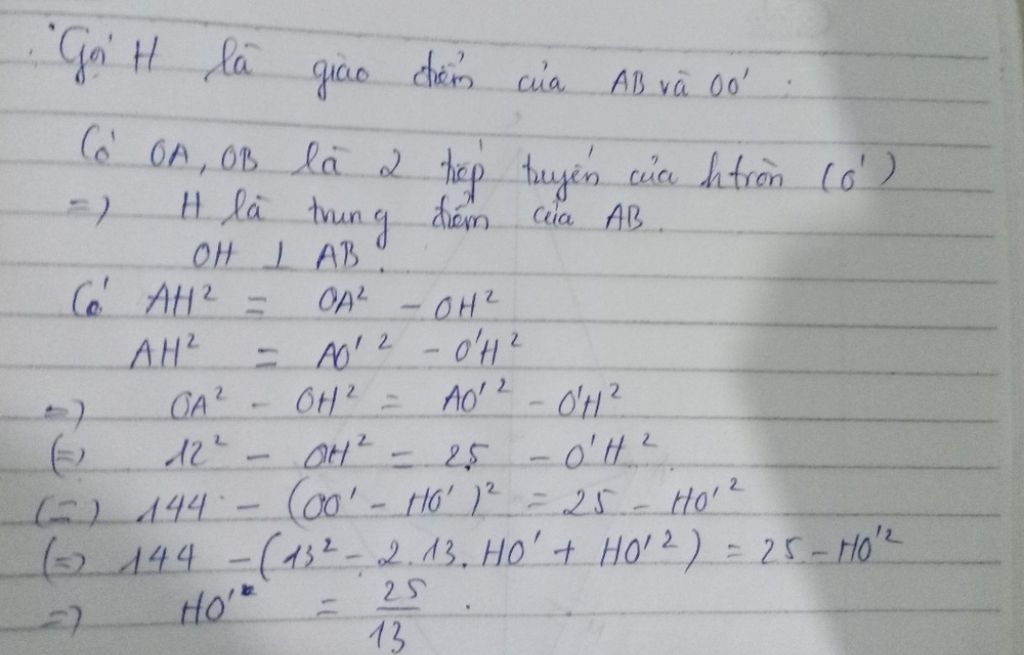 Gọi H là giao điểm của AB và OO' :
Có OA, OB là 2 tiếp tuyến của htròn (O')
=> H là trung điểm của AB.
OH ⊥ AB.
Có AH² = OA² - OH²
AH² = AO'² - O'H²
=> OA² - OH² = AO'² - O'H²
(=) 12² - OH² = 25 - O'H²
(=) 144 - (OO' - HO')² = 25 - HO'²
(=> 144 - (13² - 2.13.HO' + HO'²) = 25 - HO'²
=> HO' = 25/13.